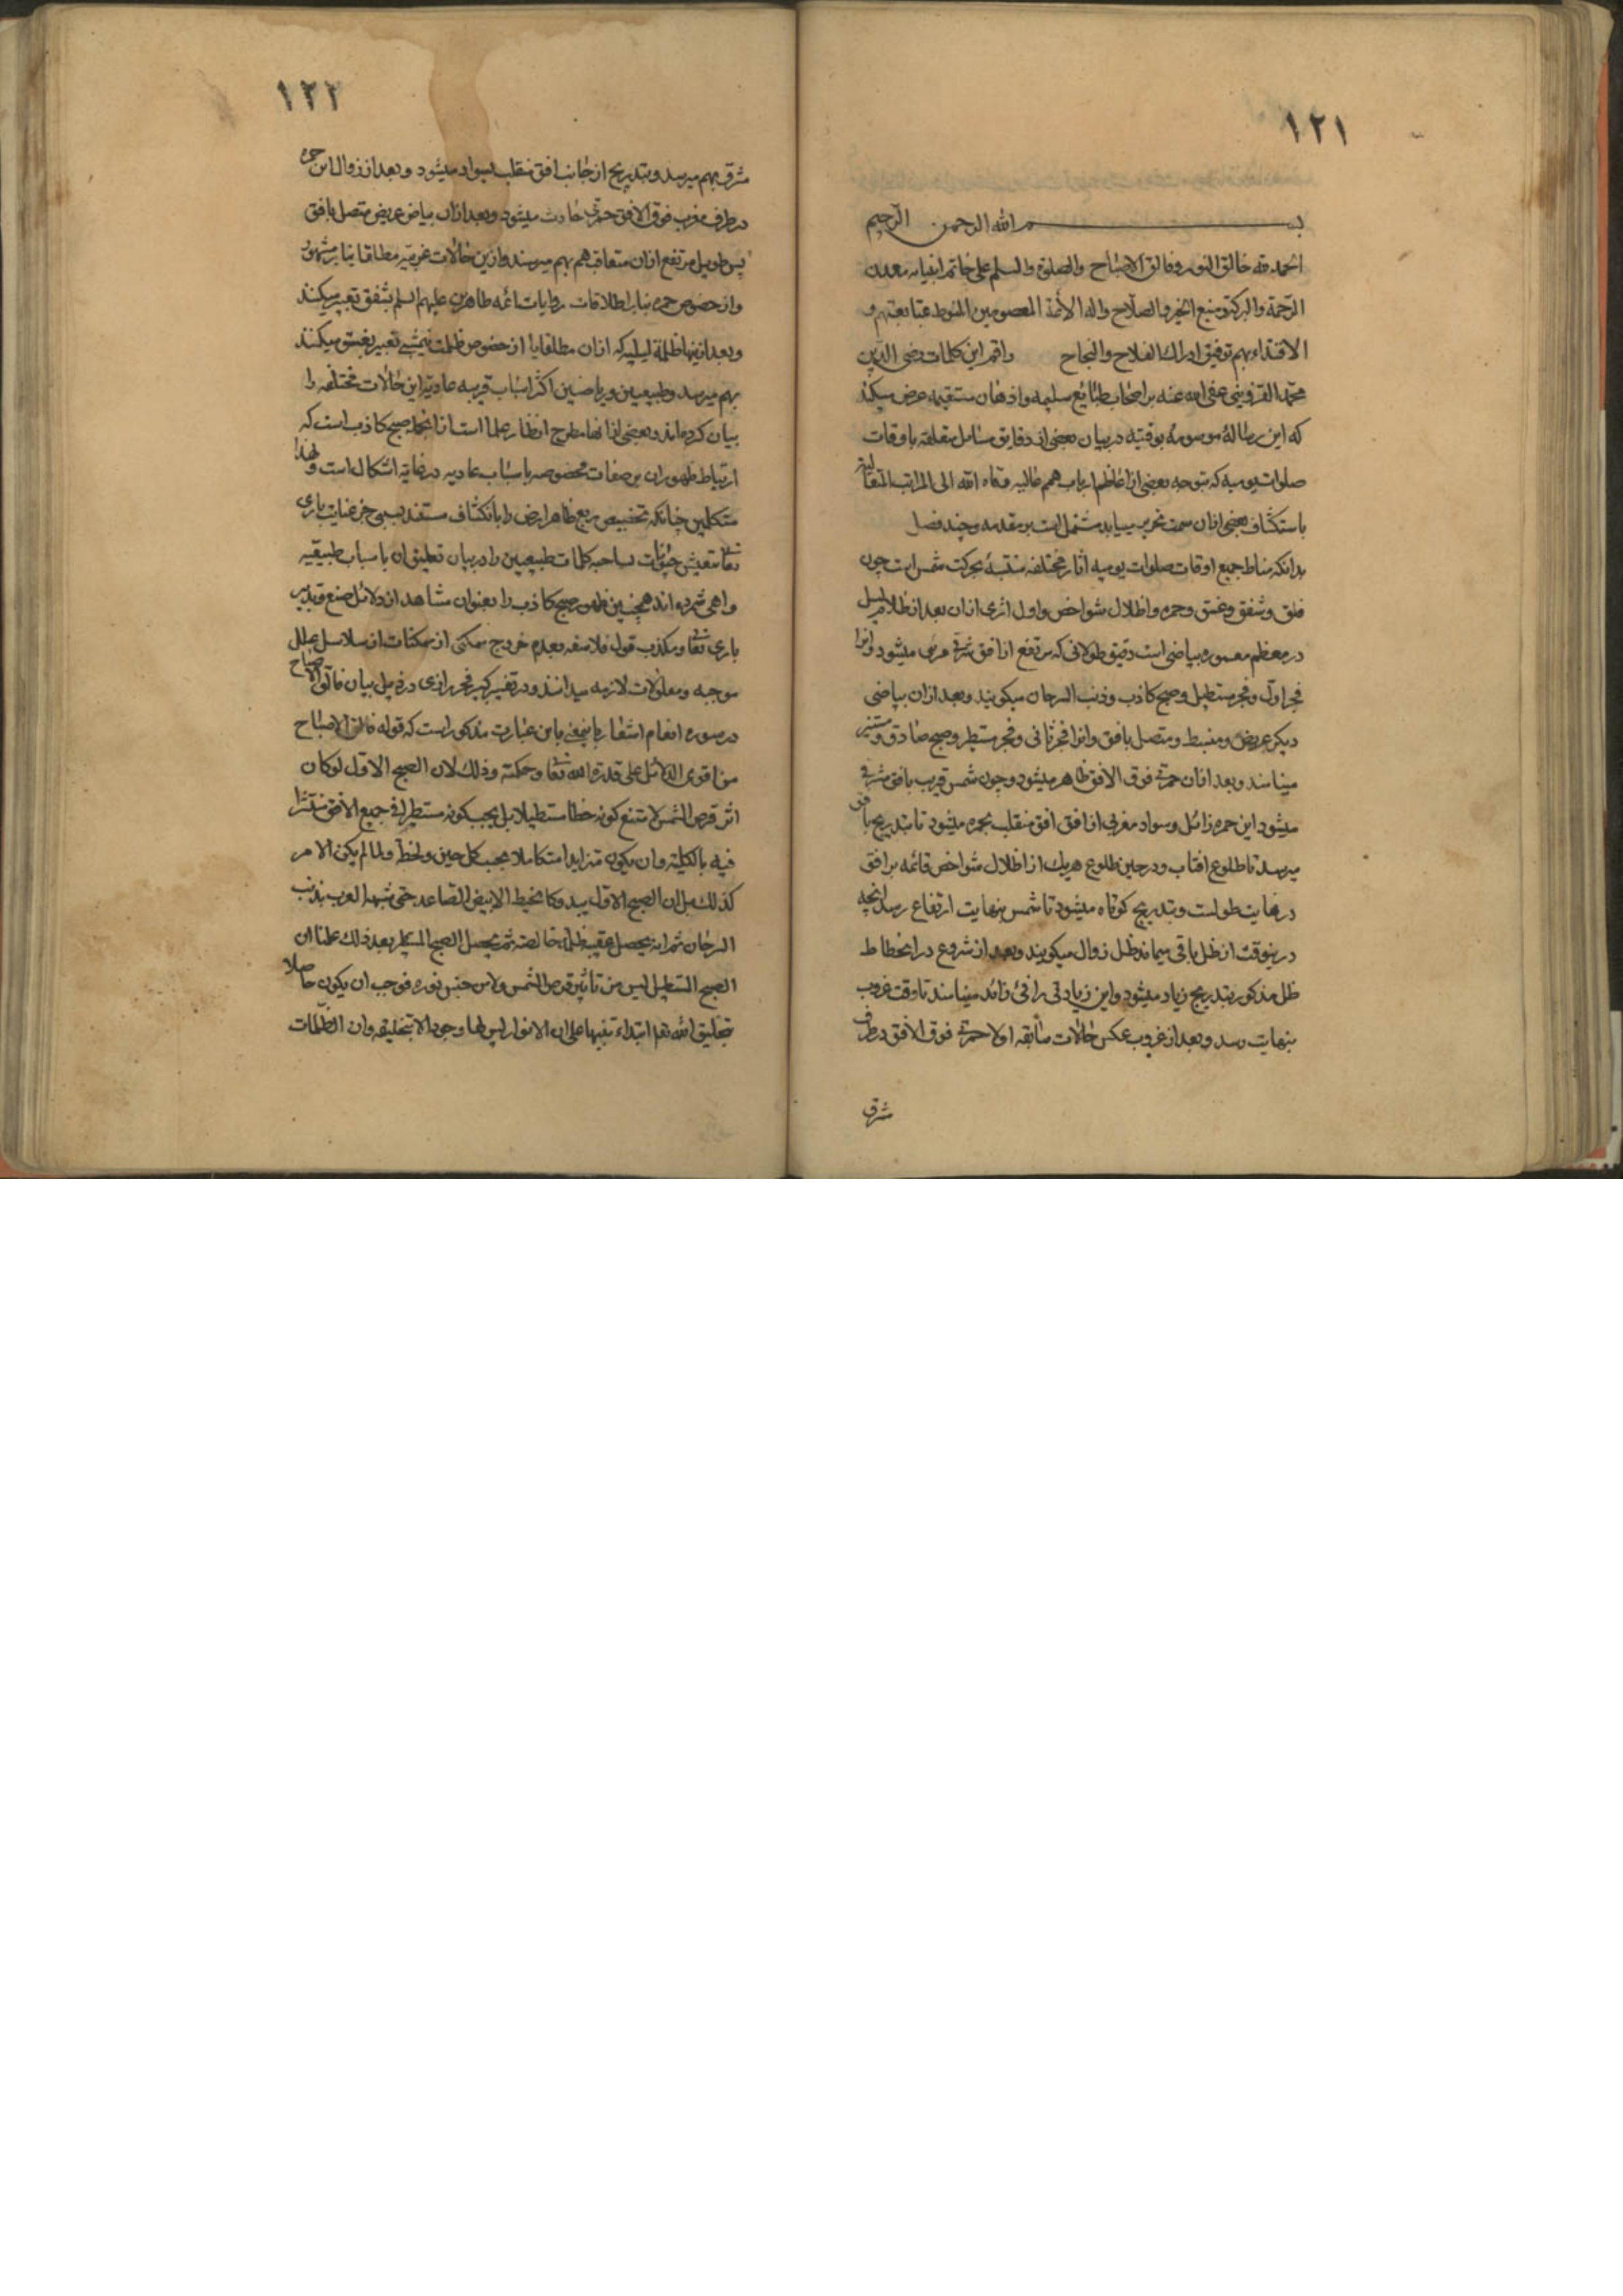 ١٢١
بسم الله الرحمن الرحیم
الحمد لله خالق النور و فالق الاصباح والصلوة والسلم علی خاتم انبیائه معدن
الرحمة والبرکة و منبع الخیر و الصلاح واله الائمة المعصومین المنوط بمتابعتهم و
الاقتداء بهم توفیق ادراك الفلاح والنجاح راقم این کلمات رضی الدین
محمد القزوینی عفی الله عنه بر اصحاب طبایع سلیمه و اذهان مستقیمه عرض میکند
که این رسالهٔ موسومهٔ بوقتیه در بیان بعضی از دقایق مسایل متعلقه باوقات
صلوات یومیه که بتوجه بعضی از اعاظم ارباب همم عالیه رقاه الله الی المراتب المتعالیة
باستکشاف بعضی ازان سمت تحریر مییابد مشتمل است بر مقدمه و چند فصل
بدانکه مناط جمیع اوقات صلوات یومیه اثار مختلفه منتسبهٔ بحرکت شمس است چون
فلق و شفق و غسق و حمره و اظلال شواخص و اول اثری ازان بعد از ظلام لیل
در معظم معموره بیاضی است دقیق طولانی که مرتفع از افق شرقی مرئی میشود و انرا
فجر اول و فجر مستطیل و صبح کاذب و ذنب السرحان میکویند و بعد ازان بیاضی
دیکر عریض و منبسط و متصل بافق و انرا فجر ثانی و فجر مستطیر و صبح صادق و مستنیر
مینامند و بعد ازان حمرتی فوق الافق ظاهر میشود و چون شمس قریب بافق شرقی
میشود این حمره زائل و سواد مغربی از افق افق منقلب بحمره میشود تا بتدریج بافق
میرسد تا طلوع افتاب و در حین طلوع هریك از اظلال شواخص قائمه بر افق
در نهایت طولست و بتدریج کوتاه میشود تا شمس بنهایت ارتفاع رسد انچه
درینوقت از ظل باقی میماند ظل زوال میکویند و بعد از شروع در انحطاط
ظل مذکور بتدریج زیاد میشود و این زیادتی را فئ زائد مینامند تا وقت غروب
بنهایت رسد و بعد از غروب عکس حالات سابقه اولا حمرتی فوق الافق در طرف
شرق
١٢٢
شرق بهم میرسد و بتدریج از جانب افق منقلب بسواد میشود و بعد از زوال این حمره
در طرف مغرب فوق الافق حمرتی حادث میشود و بعد ازان بیاض عریض متصل بافق
پس طویل مرتفع ازان متعاقب هم بهم میرسند و ازین حالات غربیه مطلقا بنابر مشهور
و از خصوص حمره بنابر اطلاقات روایات ائمه طاهرین علیهم السلم بشفق تعبیر میکنند
و بعد ازینها ظلمة لیلیه که ازان مطلقا یا از خصوص ظلمت نیمشبی تعبیر بغسق میکنند
بهم میرسد و طبیعیین و ریاضیین اکثر اسباب قریبه عادیة این حالات مختلفه را
بیان کرده‌اند و بعضی ازانها مطرح انظار علما است ازانجمله صبح کاذب است که
ارتباط ظهور ان بر صفات مخصوصه باسباب عادیه در غایة اشکال است و لهذا
متکلمین چنانکه تخصیص ربع ظاهر ارض را بانکشاف مستند بسببی جز عنایت باری
تعالی بتعیش حیوانات نساخته کلمات طبیعیین را در بیان تعلیق ان باسباب طبیعیه
واهی شمرده اند همچنین ظهور صبح کاذب را بعنوان مشاهد از دلائل صنع و تدبیر
باری تعالی و مکذب قول فلاسفه بعدم خروج ممکنی از ممکنات از سلاسل علل
موجبه و معلولات لازمه میدانند و در تفسیر کبیر فخر رازی در ذیل بیان فالق الاصباح
در سوره انعام اشعار باینمعنی باین عبارت مذکور است که قوله فالق الاصباح
من اقوی الدلائل علی قدرة الله تعالی و حکمته وذلك لان الصبح الاول لو کان
اثر قرص الشمس لامتنع کونه خطا مستطیلا بل یجب کونه مستطیرا فی جمیع الافق منتشرا
فیه بالکلیة وان یکون متزایدا متکاملا بحسب کل حین ولحظة ولما لم یکن الامر
کذلك بل ان الصبح الاول یبدو کالخیط الابیض الصاعد حتی شبهه العرب بذنب
السرحان ثم انه یحصل عقیبه ظلمة خالصة ثم یحصل الصبح المستطیر بعد ذلك علمنا ان
الصبح المستطیل لیس من تاثیر قرص الشمس ولا من جنس نوره فوجب ان یکون حاصلا
بتخلیق الله تعالی ابتداء تنبیها علی ان الانوار لیس لها وجود الا بتخلیقه وان الظلمات